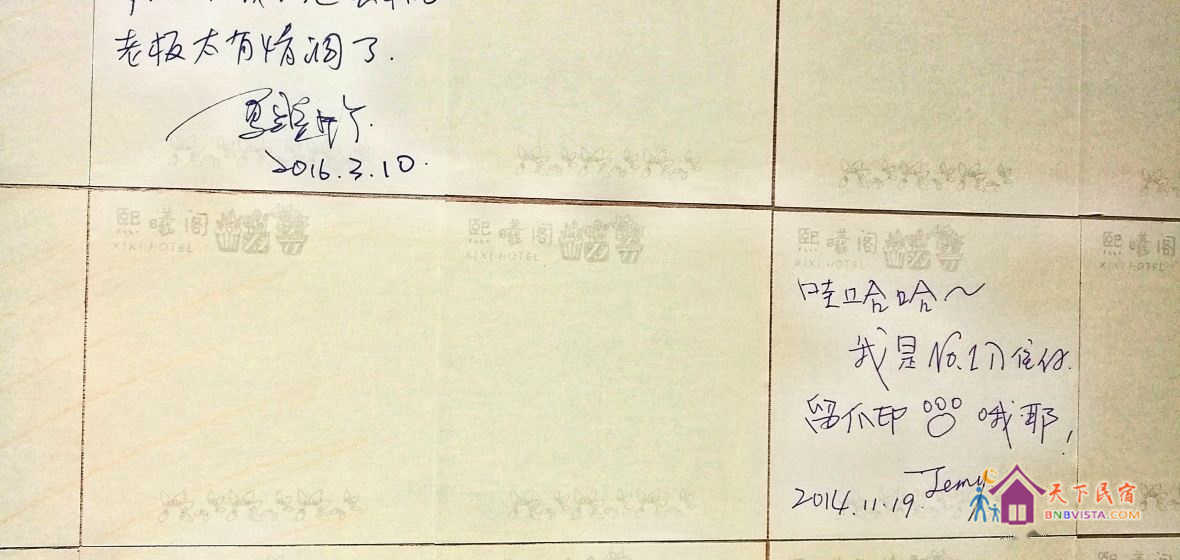 老板太有情调了.
2016.3.10.
熙曦阁
XIXI HOTEL
熙曦阁
XIXI HOTEL
熙曦阁
XIXI HOTEL
熙曦阁
XIXI HOTEL
哇哈哈~
我是No.1入住的.
留爪印 哦耶,
2014.11.19. Jemy
天下民宿
BNBVISTA.COM